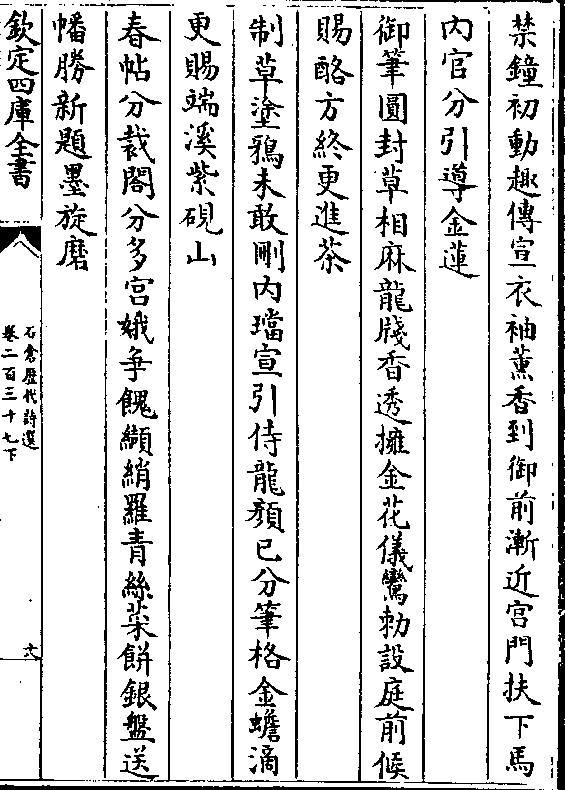 禁鐘初動趣傳宣衣袖薰香到御前漸近宫門扶下馬
内官分引導金蓮
御筆圓封草相麻龍牋香透擁金花儀鸞勅設庭前候
賜酪方終更進茶
制草塗鴉未敢刪内璫宣引侍龍顔已分筆格金蟾滴
更賜端溪紫硯山
春帖分裁閣分多宫娥爭餽纈綃羅青絲菜餅銀盤送
幡勝新題墨旋磨
欽定四庫全書
石倉歷代詩選
卷二百三十七下